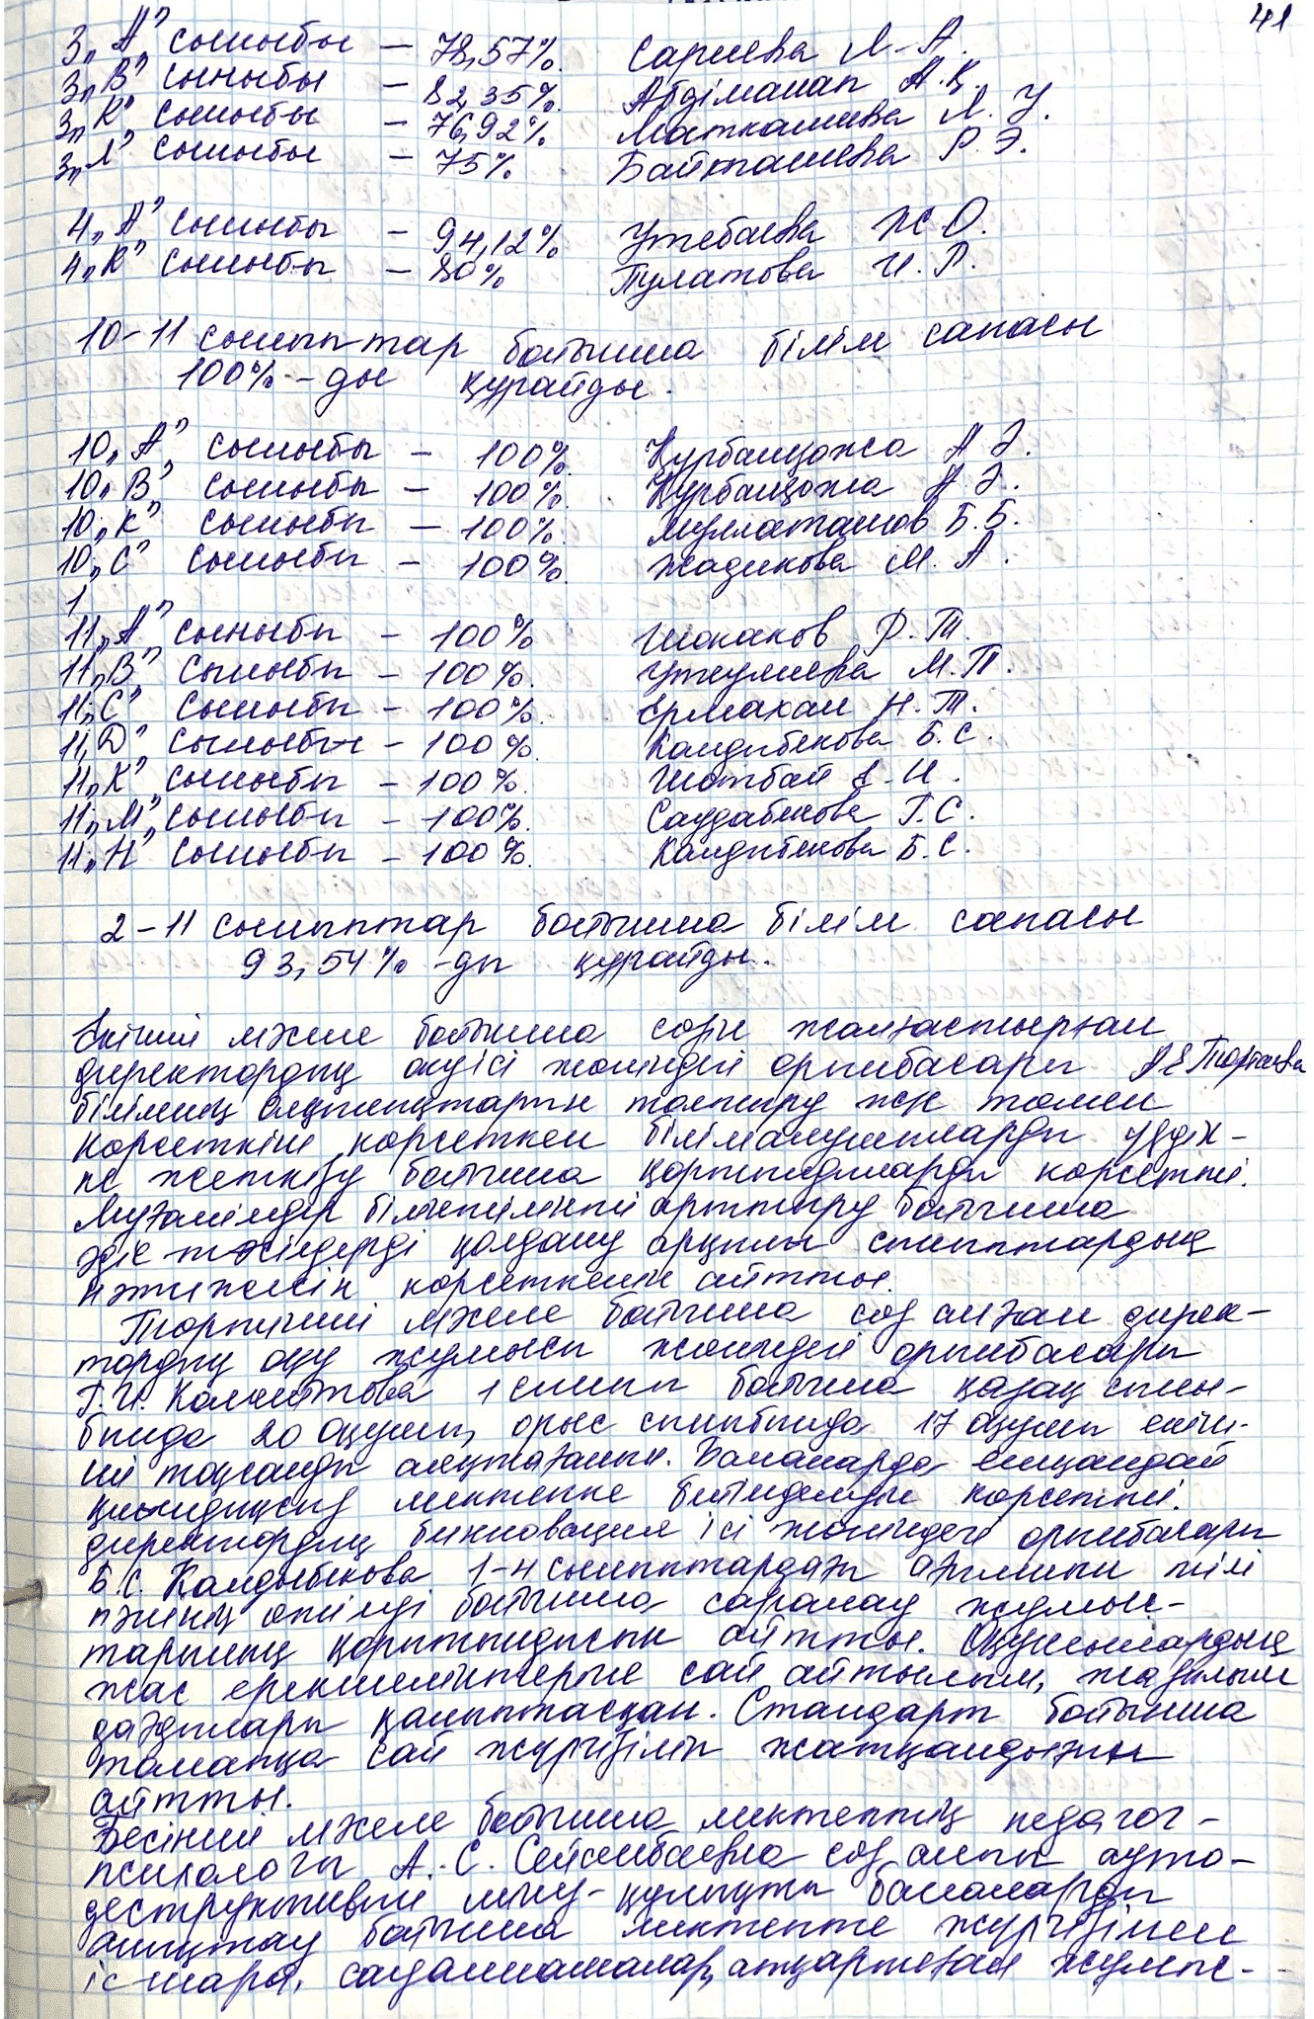 41
3 „А” сыныбы – 78,57%. Сариева Л. А.
3 „В” сыныбы – 82,35%. Абдіманап А. Қ.
3 „К” сыныбы – 76,92% Маткашева Л. У.
3 „Л” сыныбы – 75%. Байкташева Р. Э.
4 „А” сыныбы – 94,12% Утебаева Ж О.
4 „К” сыныбы – 80% Пулатова И. Р.
10-11 сыныптар бойынша білім сапасы
100%-ды құрайды.
10 „А” сыныбы – 100%. Құрбанқожа А Э.
10 „В” сыныбы – 100%. Құрбанқожа А. Э.
10 „К” сыныбы – 100%. Муллаташов Б. Б.
10 „С” сыныбы – 100%. Жадикова М. А.
1
11 „А” сыныбы – 100% Шокаков Р. Т.
11 „В” сыныбы – 100%. Уткулиева М.П.
11 „С” сыныбы – 100%. Ермахан Н. Т.
11 „Д” сыныбы – 100%. Калдыбекова Б. С.
11 „К” сыныбы – 100%. Шотбай А. И.
11 „М” сыныбы – 100%. Саудабекова Г. С.
11 „Н” сыныбы – 100%. Калдыбекова Б. С.
2-11 сыныптар бойынша білім сапасы
93,54%-ды құрайды.
Екінші мәселе бойынша сөзін жалғастырған
директордың оқу ісі жөніндегі орынбасары
білімнің олқылықтарын толтыру және төмен
көрсеткіш көрсеткен білімалушыларды үлгер-
ке жеткізу бойынша қорытындыларды көрсетті.
Мұғалімдер біліктілікті арттыру бойынша
әдіс тәсілдерді қолдану арқылы сыныптардың
нәтижесін көрсеткенін айтты.
Төртінші мәселе бойынша сөз алған дирек-
тордың оқу жұмысы жөніндегі орынбасары
Г. И. 1 сынып бойынша қазақ сыны-
бында 20 оқушы, орыс сыныбында 17 оқушы екін-
ші тоқсанды аяқтағанын. Балаларда ешқандай
қиындықсыз мектепке бейімделуін көрсетті.
директордың инновация ісі жөніндегі орынбасары
Б. С. Калдыбекова 1-4 сыныптардағы ағылшын тілі
пәнінің өтілуі бойынша саралау жұмыс-
тарының қорытындысын айтты. Оқушылардың
жас ерекшеліктеріне сай айтылым, жазылым
дағдылары қалыптасқан. Стандарт бойынша
талапқа сай жүргізіліп жатқандығын
айтты.
Бесінші мәселе бойынша мектептің педагог-
психологы А. С. Сейсенбаева сөз алып ауто-
деструктивті мінез-құлықты балаларды
анықтау бойынша мектепте жүргізілген
іс-шара, сауалнамалар, атқарылған жұмыс-